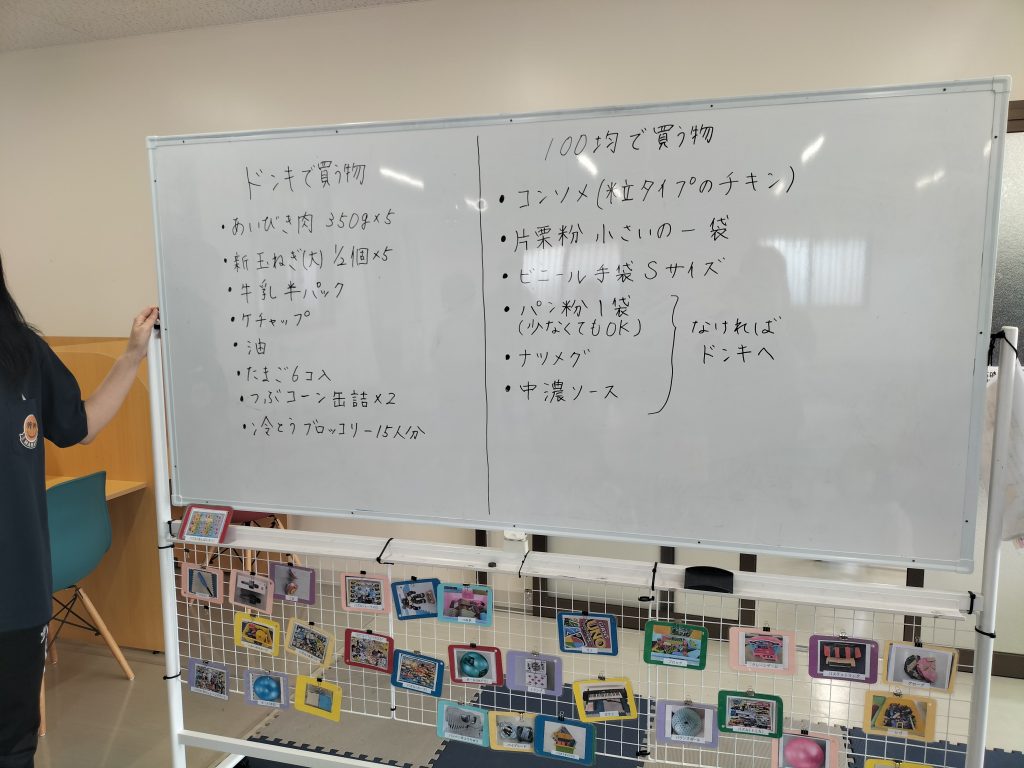 ドンキで買う物
・あいびき肉 350g×5
・新玉ねぎ(大) 1/2個×5
・牛乳半パック
・ケチャップ
・油
・たまご6コ入
・つぶコーン缶詰×2
・冷とうブロッコリー15人分
100均で買う物
・コンソメ(粒タイプのチキン)
・片栗粉 小さいの一袋
・ビニール手袋Sサイズ
・パン粉1袋
(少なくてもOK)
・ナツメグ
・中濃ソース
なければ
ドンキへ
UNO